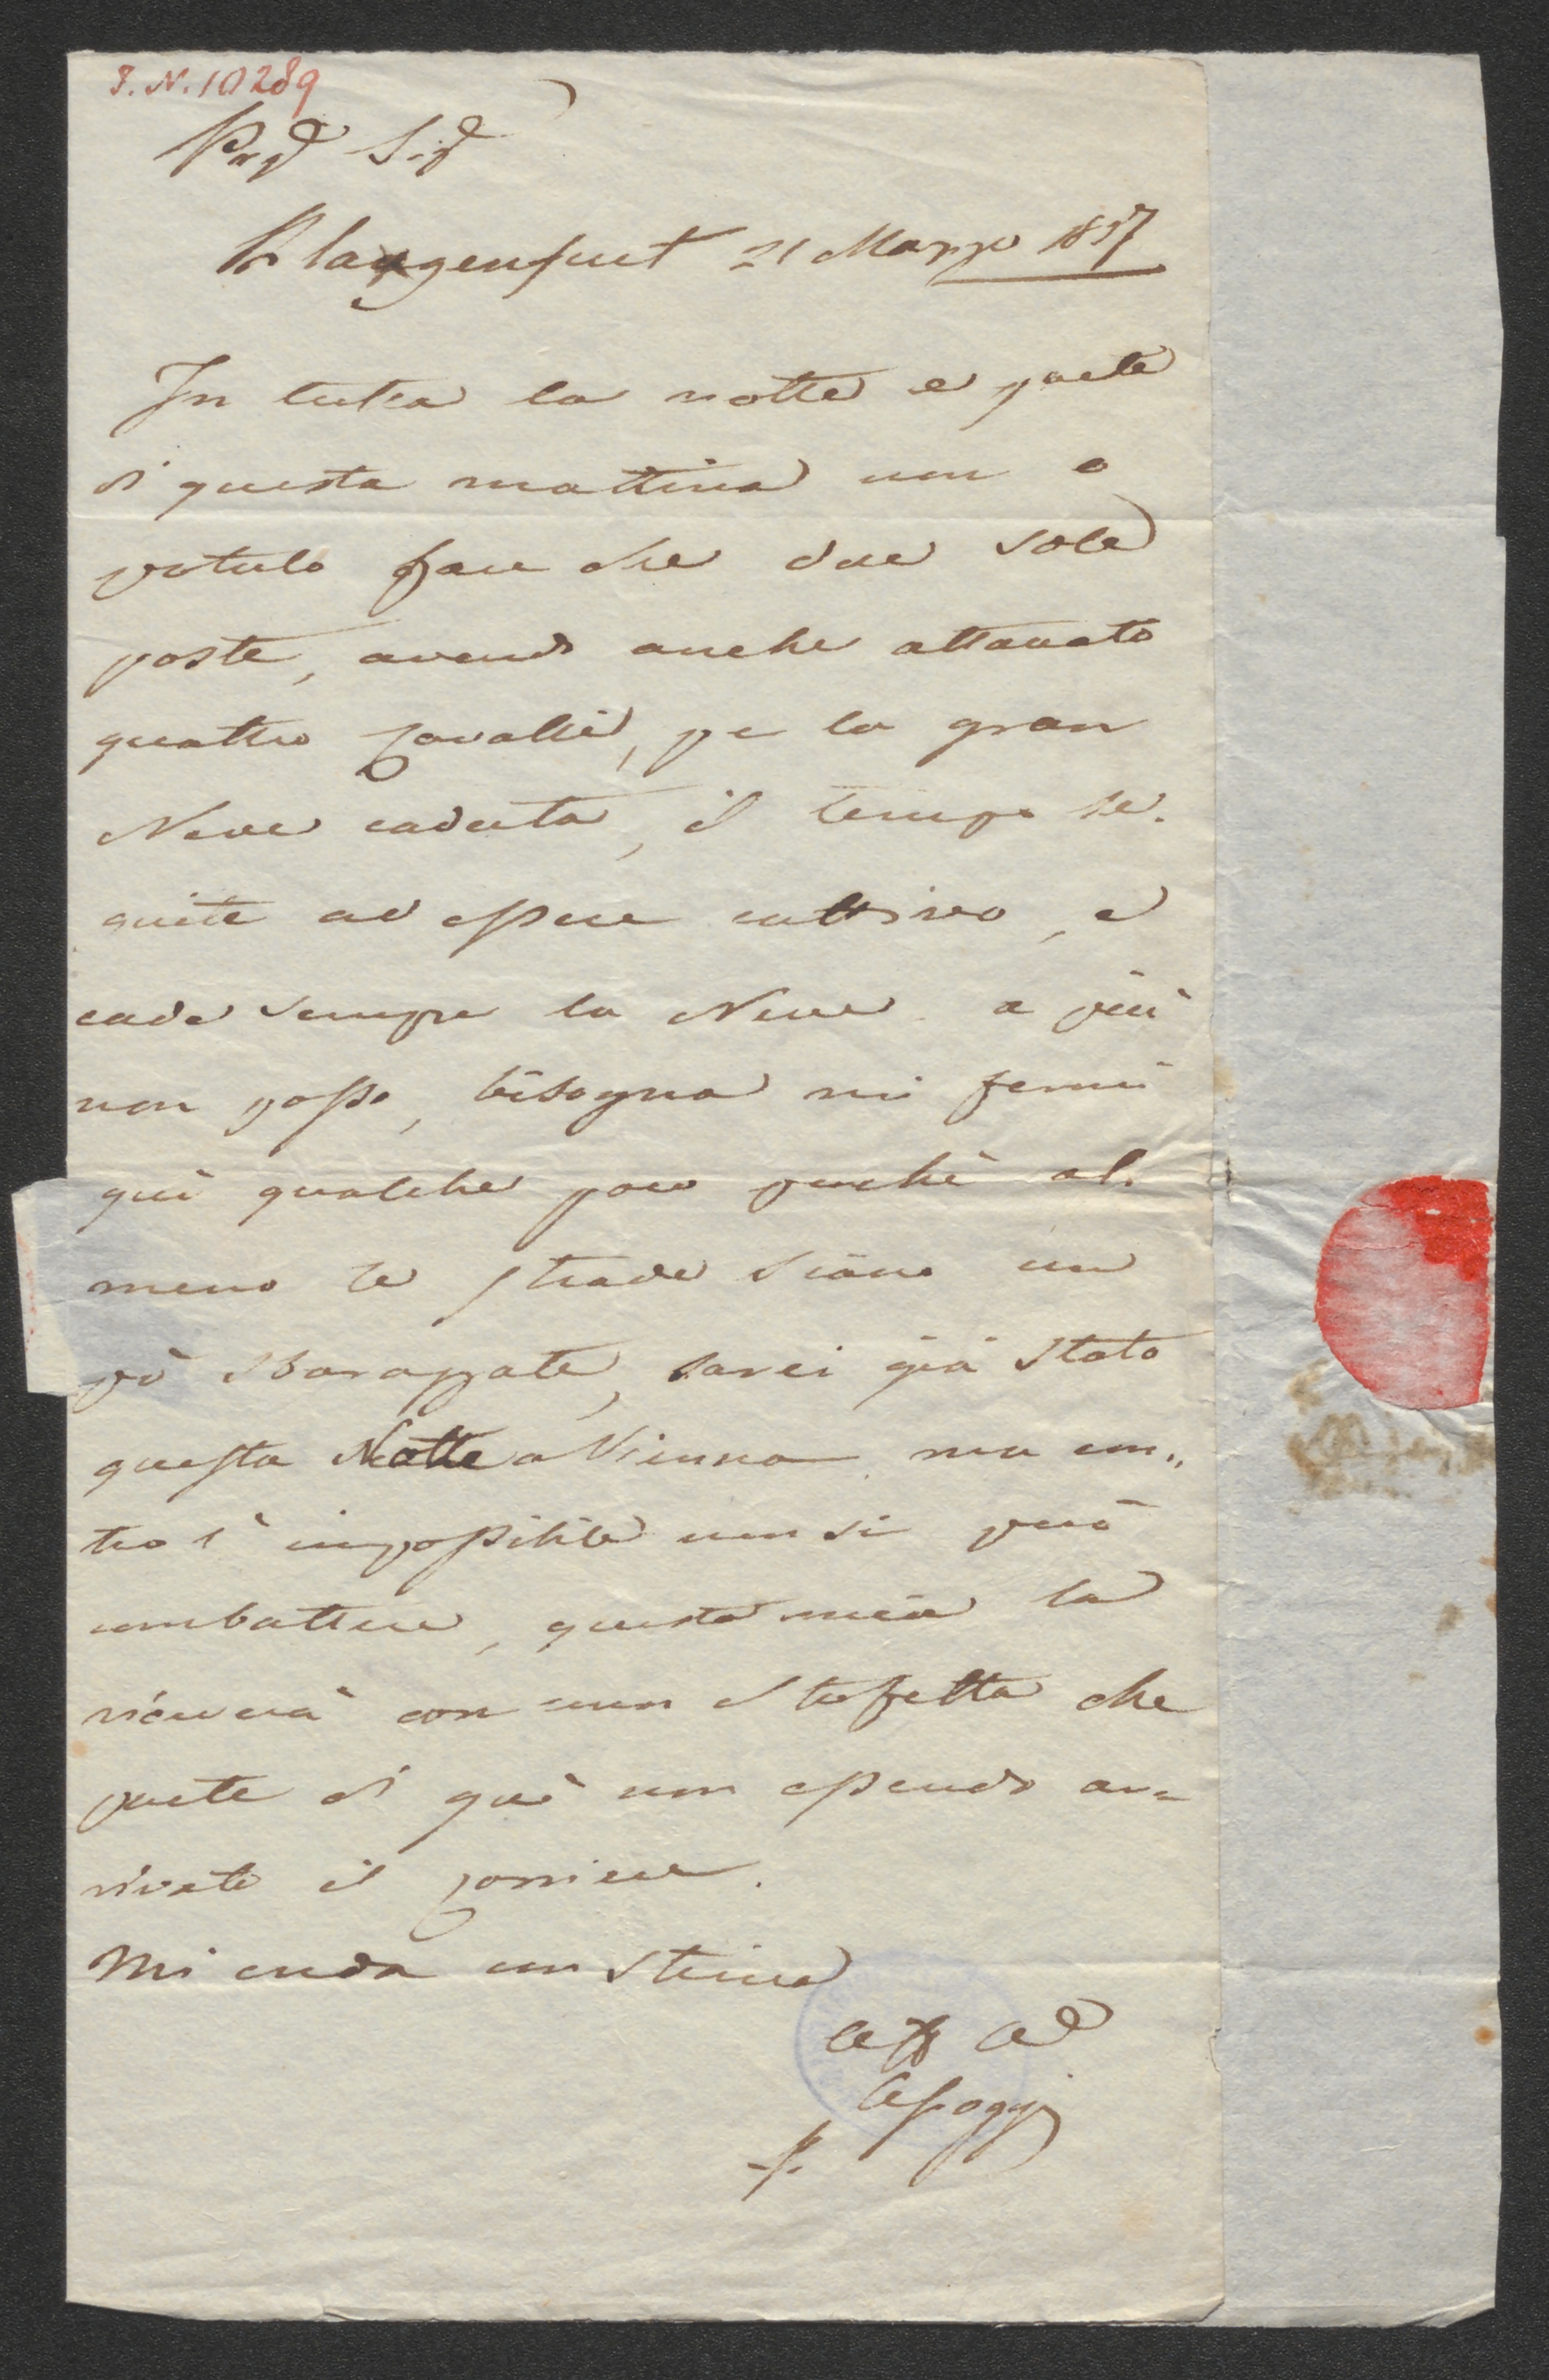 I.N.10289
Preg Sig
Klangenfurt 21 Marzo 1837
In tutta la notte e parte
di questa mattina non o
potuto fare che due sole
poste, avendo anche attaccato
quattro Cavalli, per la gran
Neve caduta, il tempo se-
guita ad essere cattivo, e
cade sempre la Neve a più
non posso, bisogna mi fermi
qui qualche poco perchè al-
meno le strade siano un
pò sbarazzate, sarei già stato
questa Notte a Vienna ma con„
tro l' impossibile non si può
combattere, questa mia la
riceverà con una staffetta che
parte di quà non essendo ar=
rivato il Corriere.
Mi creda con stima
Aff
APoggi